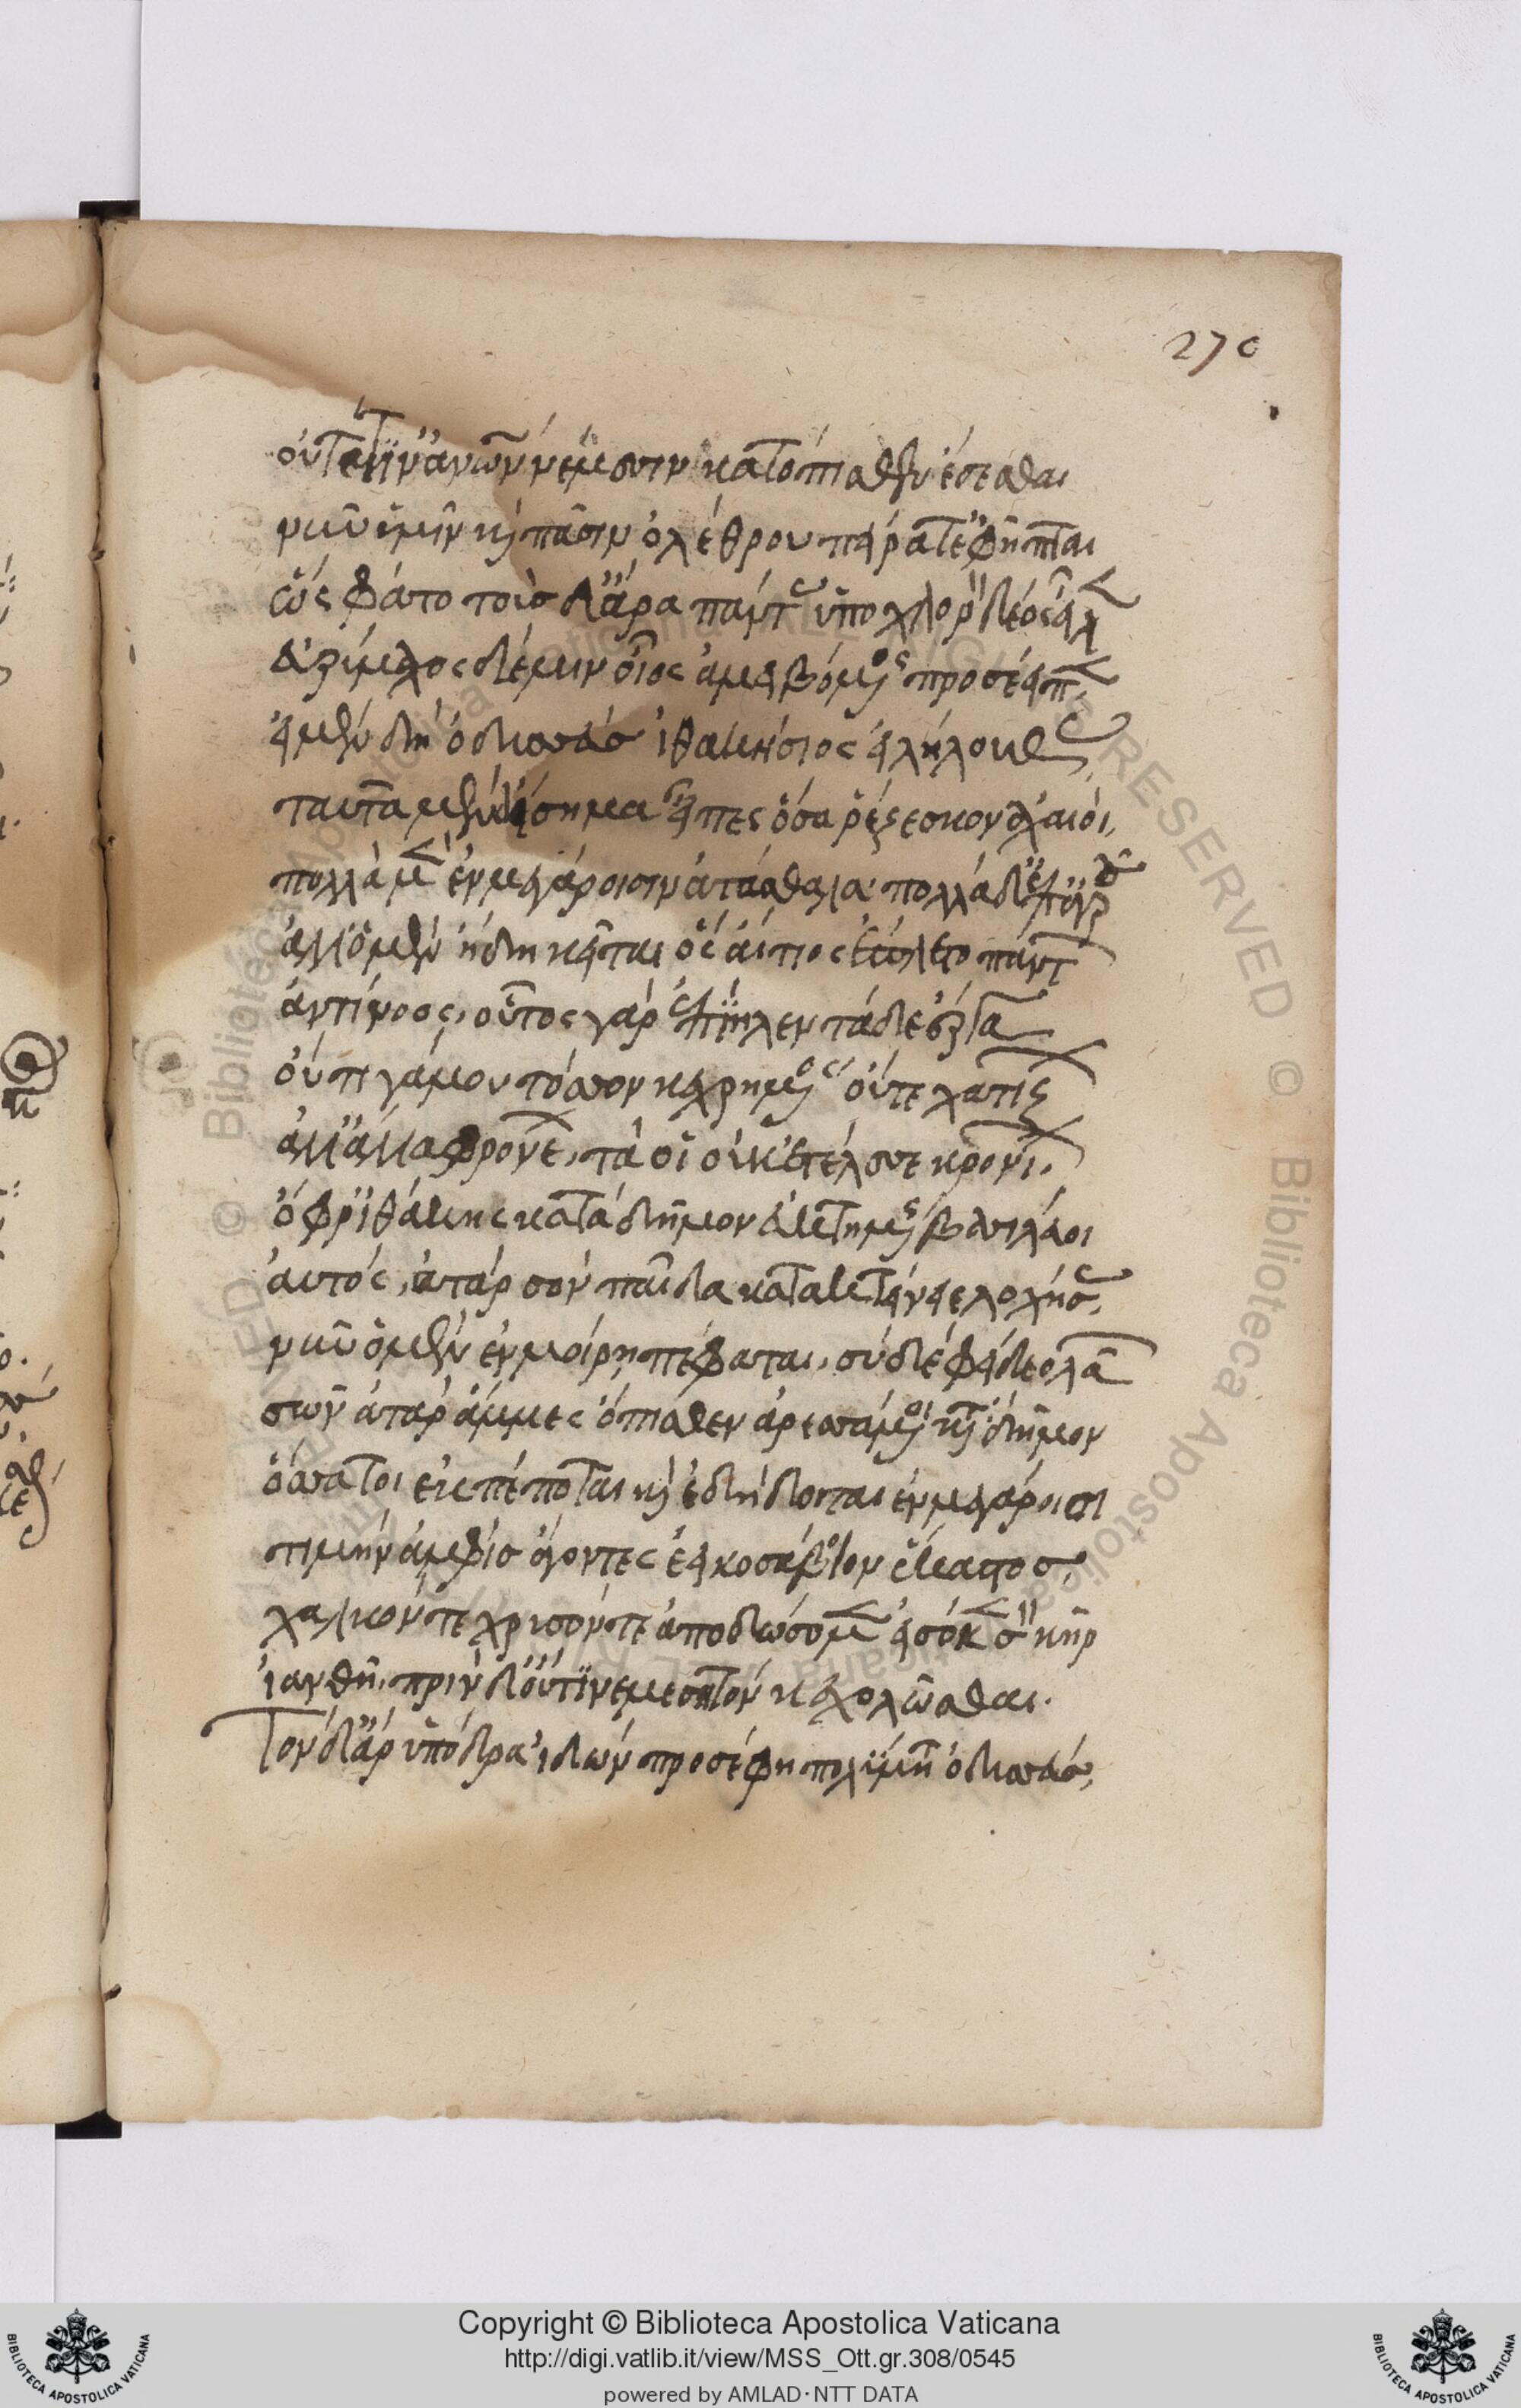 270
οὔτέ τιν' ἀνθρώπων νέμεσιν κατόπισθεν ἔσεσθαι
νῦν ὑμῖν καὶ πᾶσιν ὀλέθρου πείρατ' ἐφῆπται
ὣς φάτο τοὺσ δ' ἄρα πάντας ὑπὸ χλωρὸν δέος εἷλεν
Εὐρύμαχος δέ μιν οἶος ἀμειβόμενος προσέειπεν,
εἰ μὲν δὴ ὀδυσσεὺσ ἰθακήσιος εἰλήλουθας,
ταῦτα μὲν αἴσιμα εἶπες ὅσα ῥέζεσκον ἀχαιοί,
πολλὰ μὲν ἐν μεγάροισιν ἀτάσθαλα πολλὰ δ' ἐπ' ἀγροῦ
ἀλλ' ὁ μὲν ἤδη κεῖται ὃς αἴτιος ἔπλετο πάντων
ἀντίνοος, οὗτος γὰρ ἐπίηλεν τάδε ἔργα
οὔτι γάμου τόσσον κεχρημένος οὔτε χατίζων
ἀλλ' ἄλλα φρονέων, τά οἱ οὐκ ἐτέλεσσε κρονίων,
ὄφρ' ἰθάκης κατὰ δῆμον ἐϋκτιμένης βασιλεύοι
αὐτός, ἀτὰρ σὸν παῖδα κατακτείνειε λοχήσας,
νῦν ὁ μὲν ἐν μοίρῃ πέφαται, σὺ δὲ φείδεο λαῶν
σῶν ἀτὰρ ἄμμες ὄπισθεν ἀρεσσάμενοι κατὰ δῆμον
ὅσσα τοι ἐκπέποται καὶ ἐδήδοται ἐν μεγάροισι
τιμὴν ἀμφὶσ ἄγοντες ἐεικοσάβοιον ἕκαστος,
χαλκόν τε χρυσόν τε ἀποδώσομεν εἰσόκε σὸν κῆρ
ἰανθῇ, πρὶν δ' οὔτι νεμεσητὸν κεχολῶσθαι.
Τὸν δ' ἄρ' ὑπόδρα ἰδὼν προσέφη πολύμητις ὀδυσσεύς,
© Biblioteca Apostolica Vaticana ALL RIGHTS RESERVED © Biblioteca Apostolica Vaticana ALL RIGHTS RESERVED
Copyright © Biblioteca Apostolica Vaticana
http://digi.vatlib.it/view/MSS_Ott.gr.308/0545
powered by AMLAD·NTT DATA
BIBLIOTECA APOSTOLICA VATICANA
BIBLIOTECA APOSTOLICA VATICANA